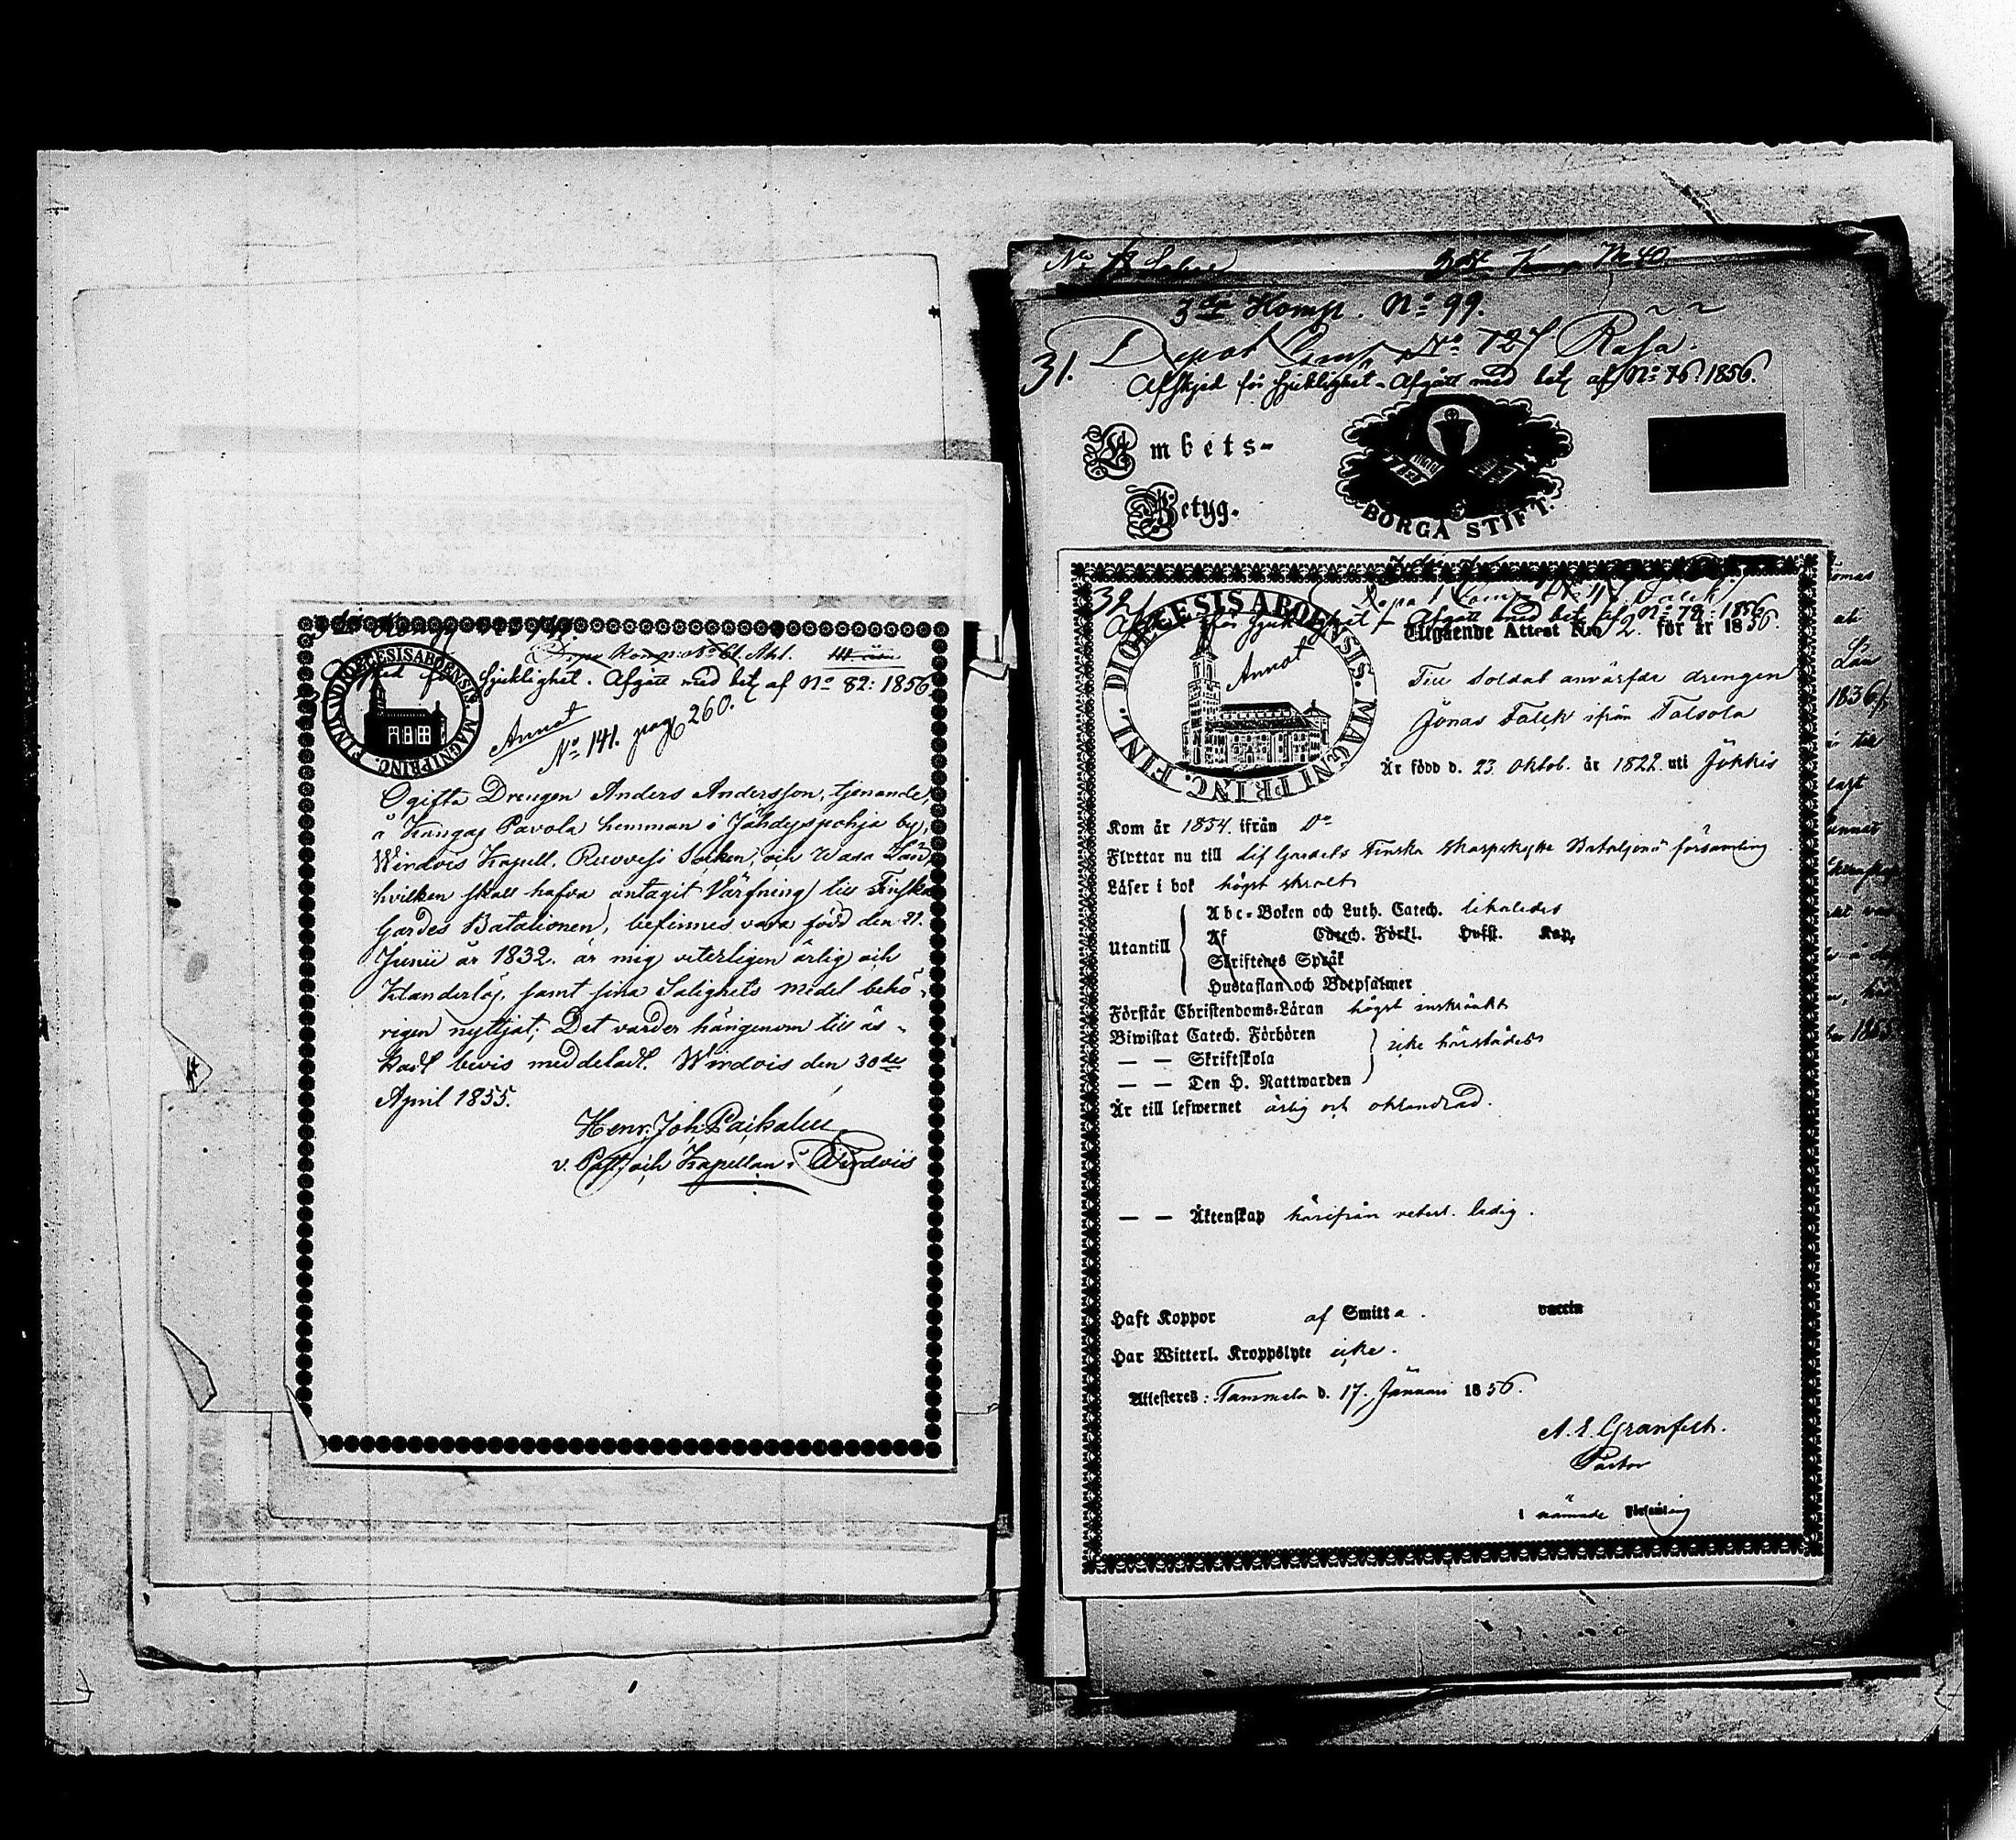 Komp No
Depot Komp. No 61. Ahl.
sjuklighet. Afgått med bet af No 82: 1856
DIOECESIS ABOËNSIS. MAGNI PRINC. FINL.
Annot
No 141. pag 260.
Ogifta Drengen Anders Andersson, tjenande,
å Kangas Pavola hemman i Jähdyspohja by,
Wirdois Kapell, Ruovesi Socken, och Wasa Län,
hvilken skall hafva antagit Värfning till Finska
Gardes Batalionen, befinnes vara född den 21.
Junii år 1832. är mig veterligen ärlig och
klanderlös, samt sina Salighets medel behö-
rigen nyttjat; Det varder härigenom till äs-
kadt bevis meddeladt. Wirdois den 30de
April 1855.
Henr. Joh. Paikalen
v. Past. och Kapellan i Wirdois
No 12
Komp No 40.
3dje Komp. No 99.
31. Depot Comp No 127 Rasa.
Afskjed för sjuklighet - Afgått med bet af No 76: 1856.
Embets-
Betyg.
BORGÅ STIFT.
32.
Depot Comp No Falck
för sjuklighet - Afgått med bet af No 79: 1856
DIOECESIS ABOËNSIS. MAGNI PRINC. FINL.
Annot
Utgående Attest N:o 2. för år 1856.
Till Soldat anvärfde drengen
Jonas Falck ifrån Talsola
Är född d. 23 Oktob. år 1822. uti Jokkis
Kom år 1834. ifrån Do
Flyttar nu till Lif Gardets Finska Skarpskytte Bataljons församling
Läser i bok högst skralt
Utantill
Abc-Boken och Luth. Catech. likaledes
Af Catech. Förkl. Hufst. Kap.
Skriftenes Språk
Hustaflan och Botpsalmer
Förstår Christendoms-Läran högst inskränkt
Biwistat Catech. Förhören
— — Skriftskola
— — Den H. Nattwarden
icke härstädes
Är till lefwernet ärlig och oklandrad.
— — Äktenskap härifrån veterl. ledig.
Haft Koppor af Smitta. vaccin
Har Witterl. Kroppslyte icke.
Attesteras: Tammela d. 17. Januari 1856.
A. E. Granfelt.
Pastor
i nämnde Församling
1836
1855